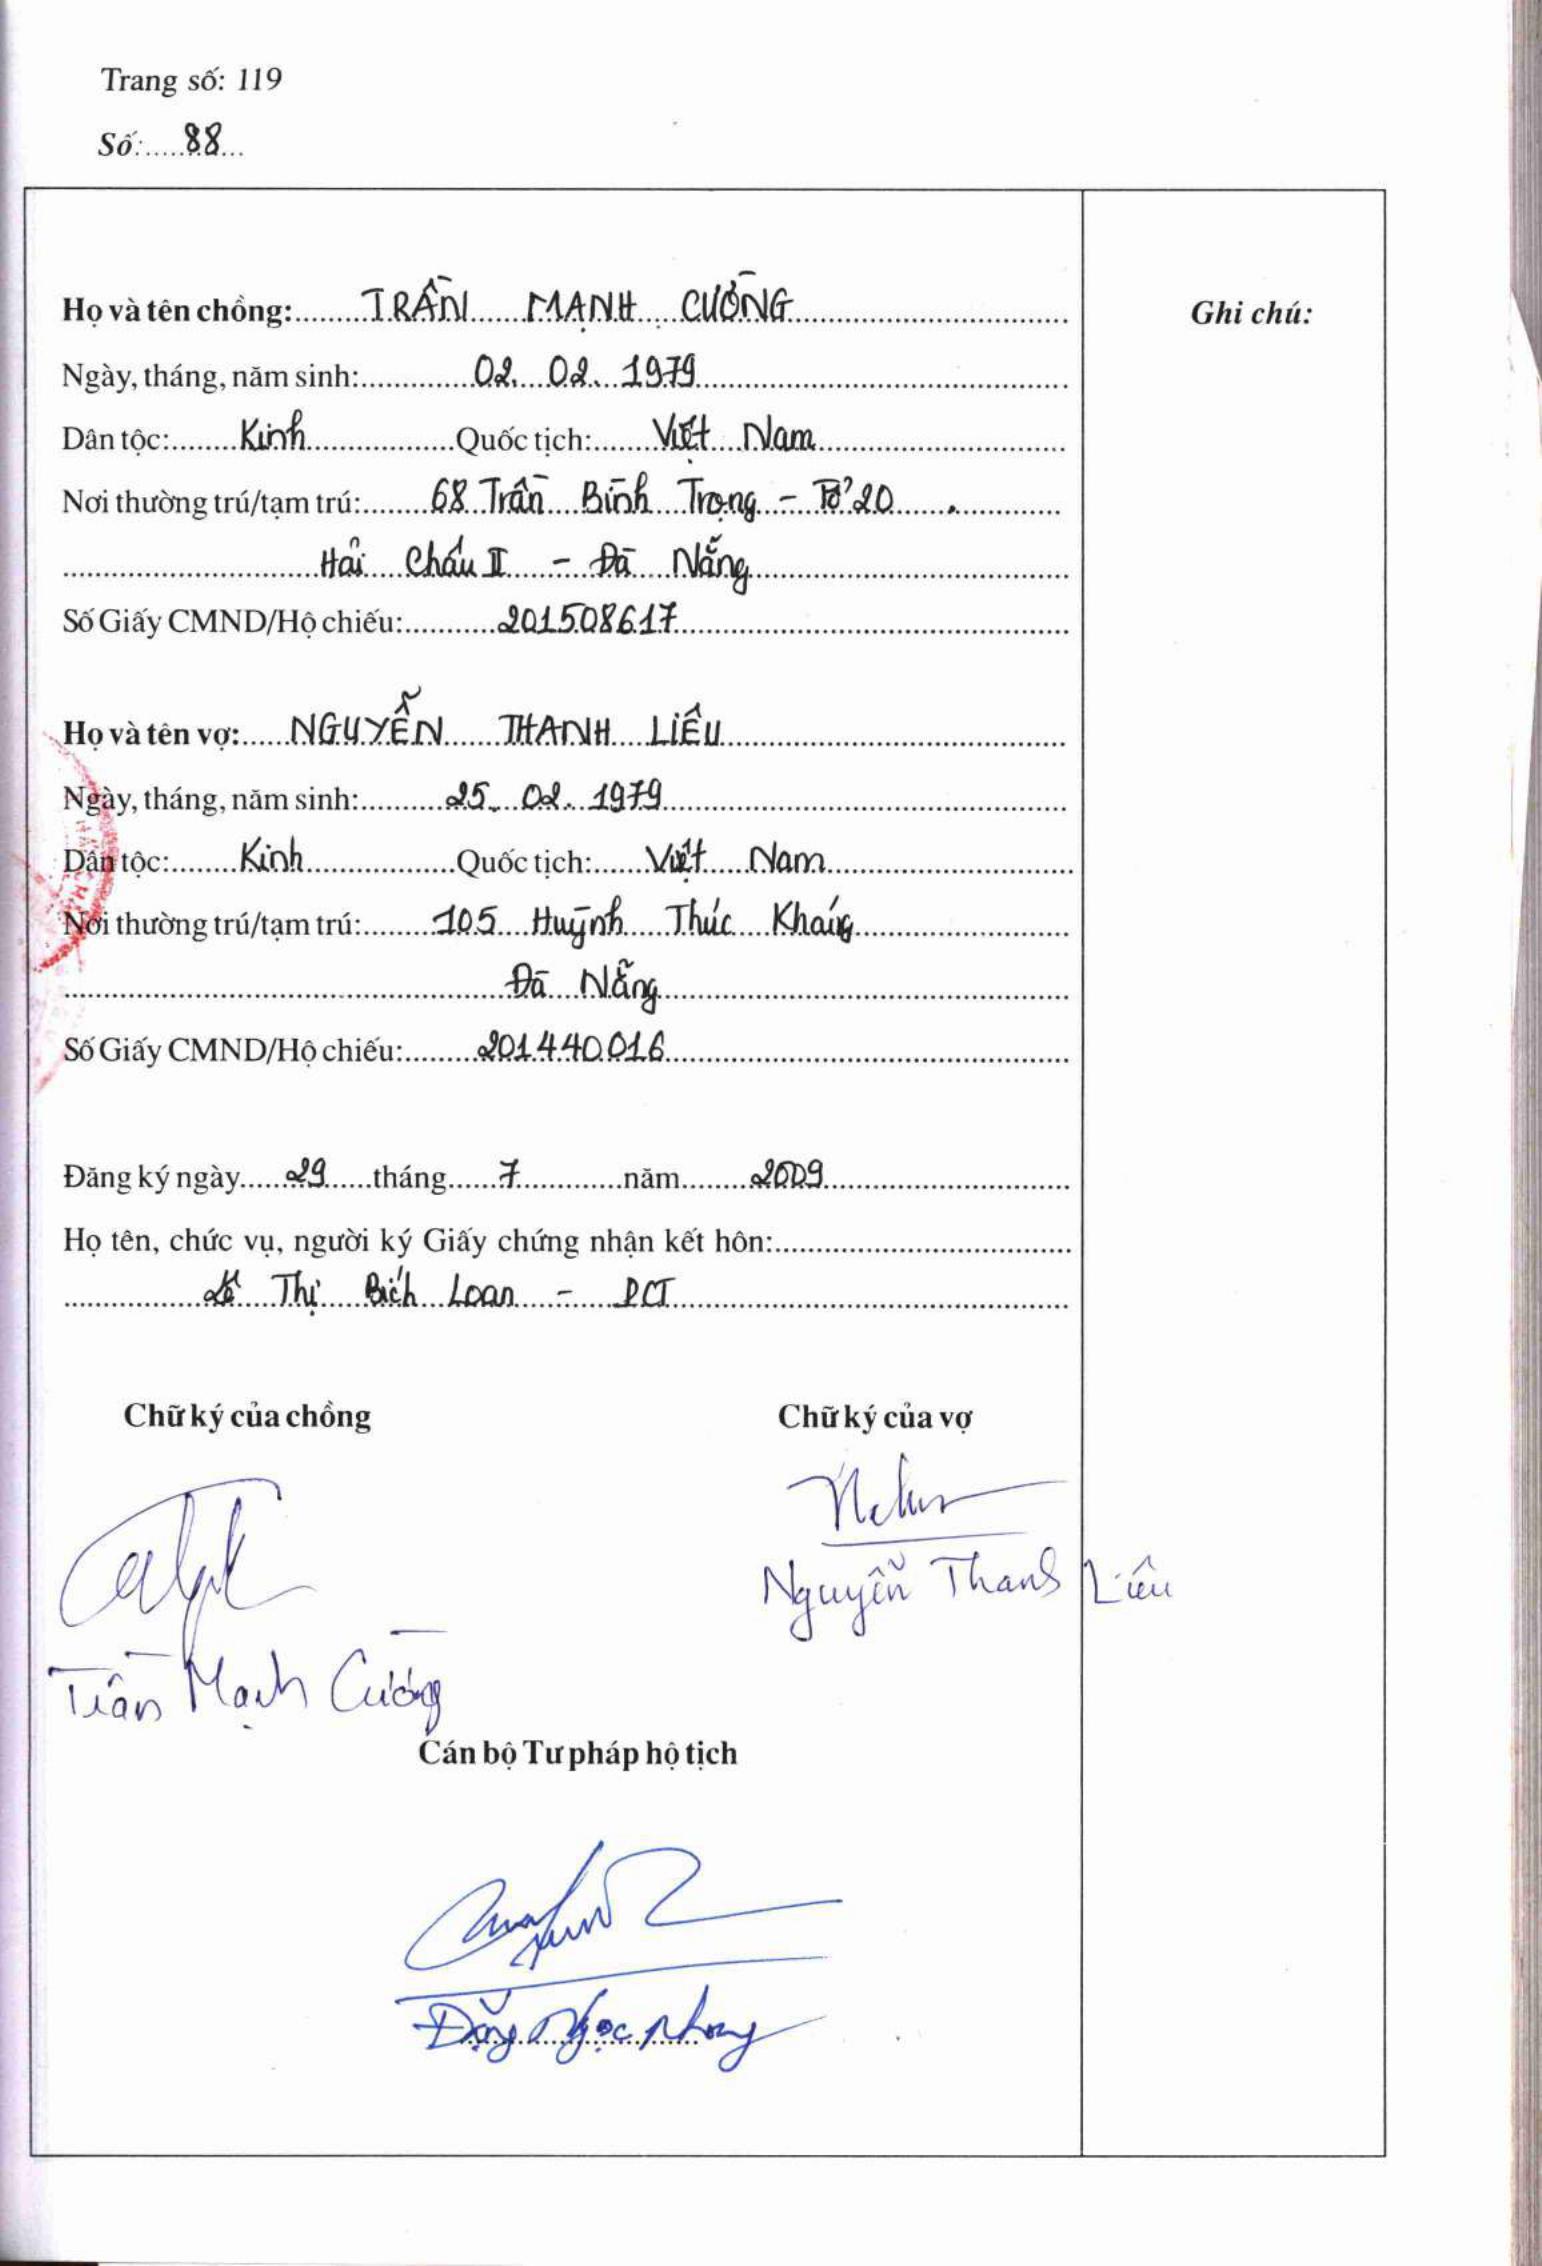 Trang số: 119
Số: 88
Họ và tên chồng: TRẦN MẠNH CƯỜNG
Ghi chú:
Ngày, tháng, năm sinh: 02. 02. 1979
Dân tộc: Kinh Quốc tịch: Việt Nam
Nơi thường trú/tạm trú: 68 Trần Bình Trọng - Tổ 20
Hải Châu II - Đà Nẵng
Số Giấy CMND/Hộ chiếu: 201508617
Họ và tên vợ: NGUYỄN THANH LIÊU
Ngày, tháng, năm sinh: 25. 02. 1979
Dân tộc: Kinh Quốc tịch: Việt Nam
Nơi thường trú/tạm trú: 105 Huỳnh Thúc Kháng
Đà Nẵng
Số Giấy CMND/Hộ chiếu: 201440016
Đăng ký ngày 29 tháng 7 năm 2009
Họ tên, chức vụ, người ký Giấy chứng nhận kết hôn:
Lê Thị Bích Loan - PCT
Chữ ký của chồng Chữ ký của vợ
Nguyễn Thanh Liêu
Trần Mạnh Cường
Cán bộ Tư pháp hộ tịch
Đặng Ngọc Phong